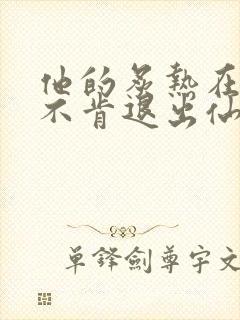 他的炙熱在
不肯退出仙
單鋒劍尊宇文